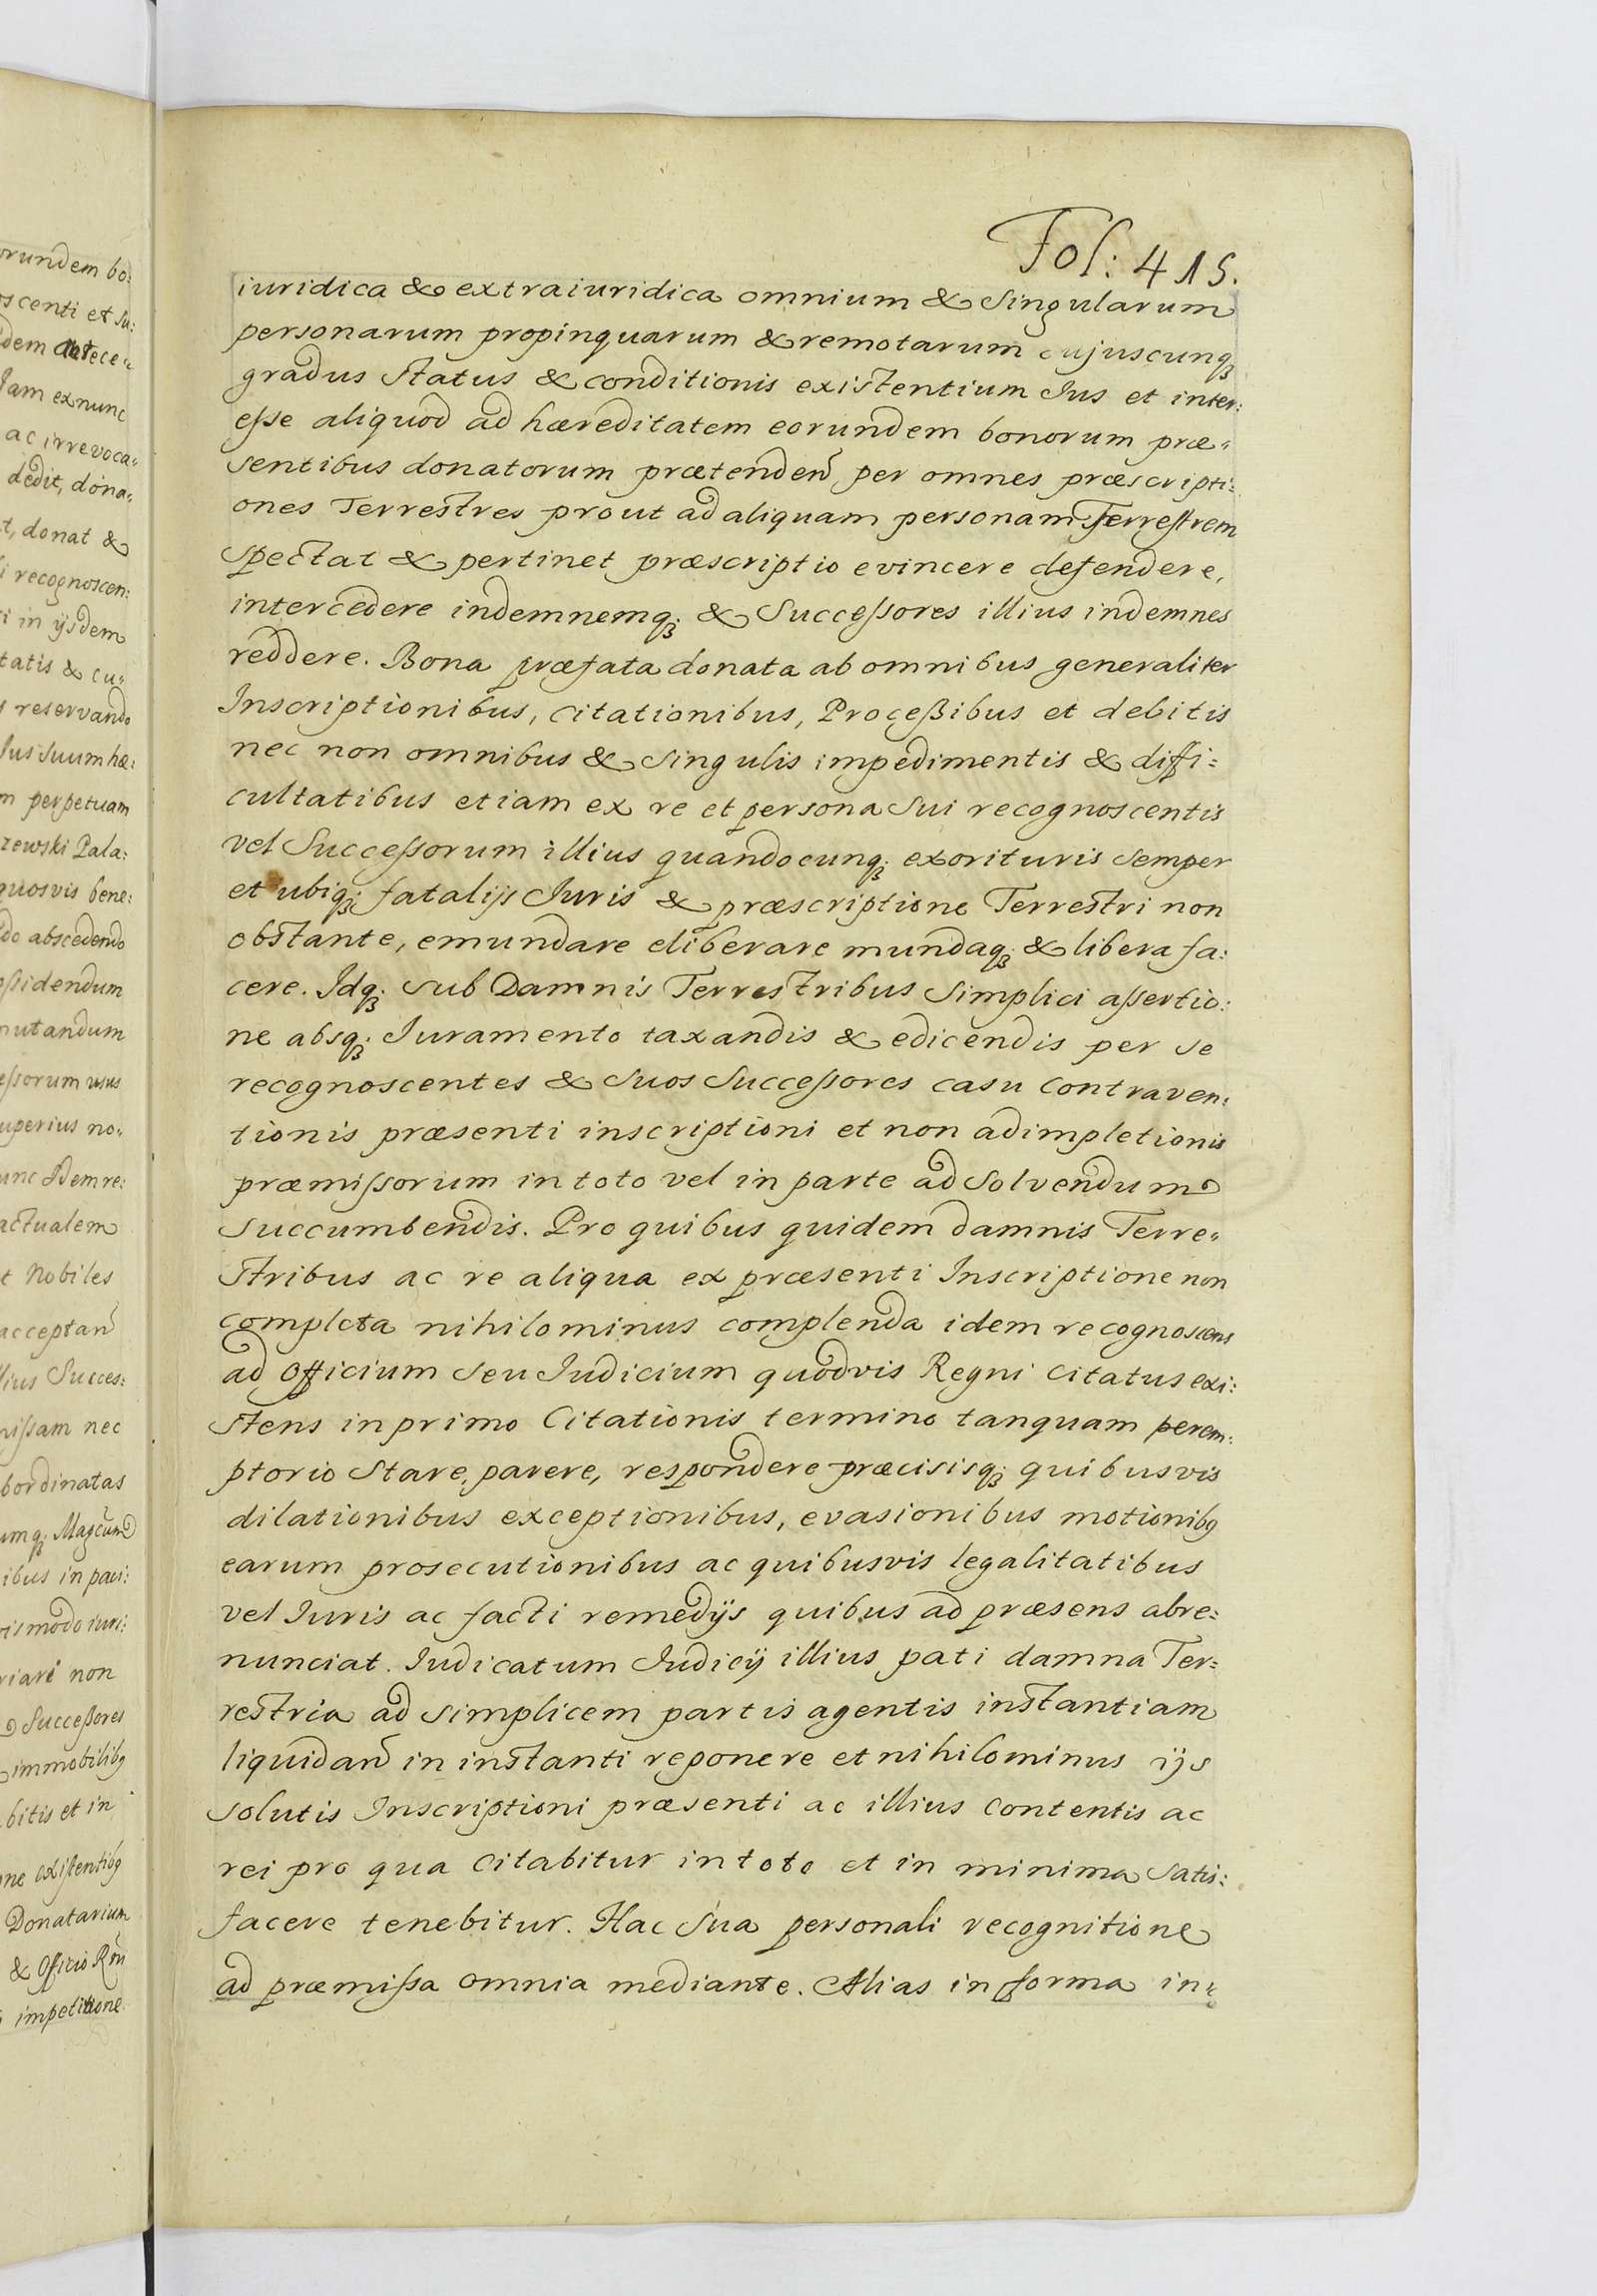 Fol: 415.
iuridica & extraiuridica omnium & Singularum
personarum propinquarum & remotarum cujuscunq;
gradus Status & conditionis existentium Ius et inter:
eſse aliquod ad hæreditatem eorundem bonorum præ„
sentibus donatorum prætenden̄ per omnes præscripti:
ones Terrestres prout ad aliquam personam Terreſtrem
Spectat & pertinet præscriptio evincere defendere,
intercedere indemnemq; & Succeſsores illius indemnes
reddere. Bona præfata donata ab omnibus generaliter
Inscriptionibus, Citationibus, Proceßibus et debitis
nec non omnibus & Singulis impedimentis & diffi:
cultatibus etiam ex re et persona Sui recognoscentis
vel Succeſsorum illius quandocunq; exorituris semper
et ubiq; fatalijs Iuris & præscriptione Terrestri non
obstante, emundare eliberare mundaq; & libera fa:
cere. Idq; sub Damnis Terrestribus Simplici aſsertio:
ne absq; Iuramento taxandis & edicendis per se
recognoscentes & Suos Succeſsores casu Contraven:
tionis præsenti inscriptioni et non adimpletionis
præmiſsorum in toto vel in parte ad Solvendum
Succumbendis. Pro quibus quidem damnis Terre„
Stribus ac re aliqua ex præsenti Inscriptione non
Completa nihilominus complenda idem recognoscens
ad Officium Seu Iudicium quodvis Regni Citatus exi:
Stens in primo Citationis termino tanquam perem:
ptorio Stare, parere, respondere præcisisq; quibusvis
dilationibus exceptionibus, evasionibus motionibq
earum prosecutionibus ac quibusvis legalitatibus
vel Iuris ac facti remedijs quibus ad præsens abre:
nunciat. Iudicatum Iudicij illius pati damna Ter:
restria ad Simplicem partis agentis instantiam
liquidan̄ in instanti reponere et nihilominus ijs
Solutis Inscriptioni præsenti ac illius Contentis ac
rei pro qua Citabitur in toto et in minima Satis:
facere tenebitur. Hac Sua personali recognitione
ad præmiſsa omnia mediante. Alias in forma in„
orundem bo:
oscenti et Su:
dem antece„
Iam ex nunc
ac irrevoca„
dedit, dona„
t, donat &
i recognoscen:
i in ijsdem
tatis & cu„
reservando
Ius Suum hæ:
m perpetuam
zewski Pala:
quosvis bene:
do abscedendo
oſsidendum
mutandum
eſsorum usus
uperius no„
unc idem re:
actualem
t Nobiles
acceptan̄
lius Succes:
miſsam nec
bordinatas
umq; Magcum
ibus in paci:
vis modo iuri:
riari non
Succeßores
immobilibq
bitis et in
ne existentibq
Donatarium
& Officio Rn̄i
impetitione